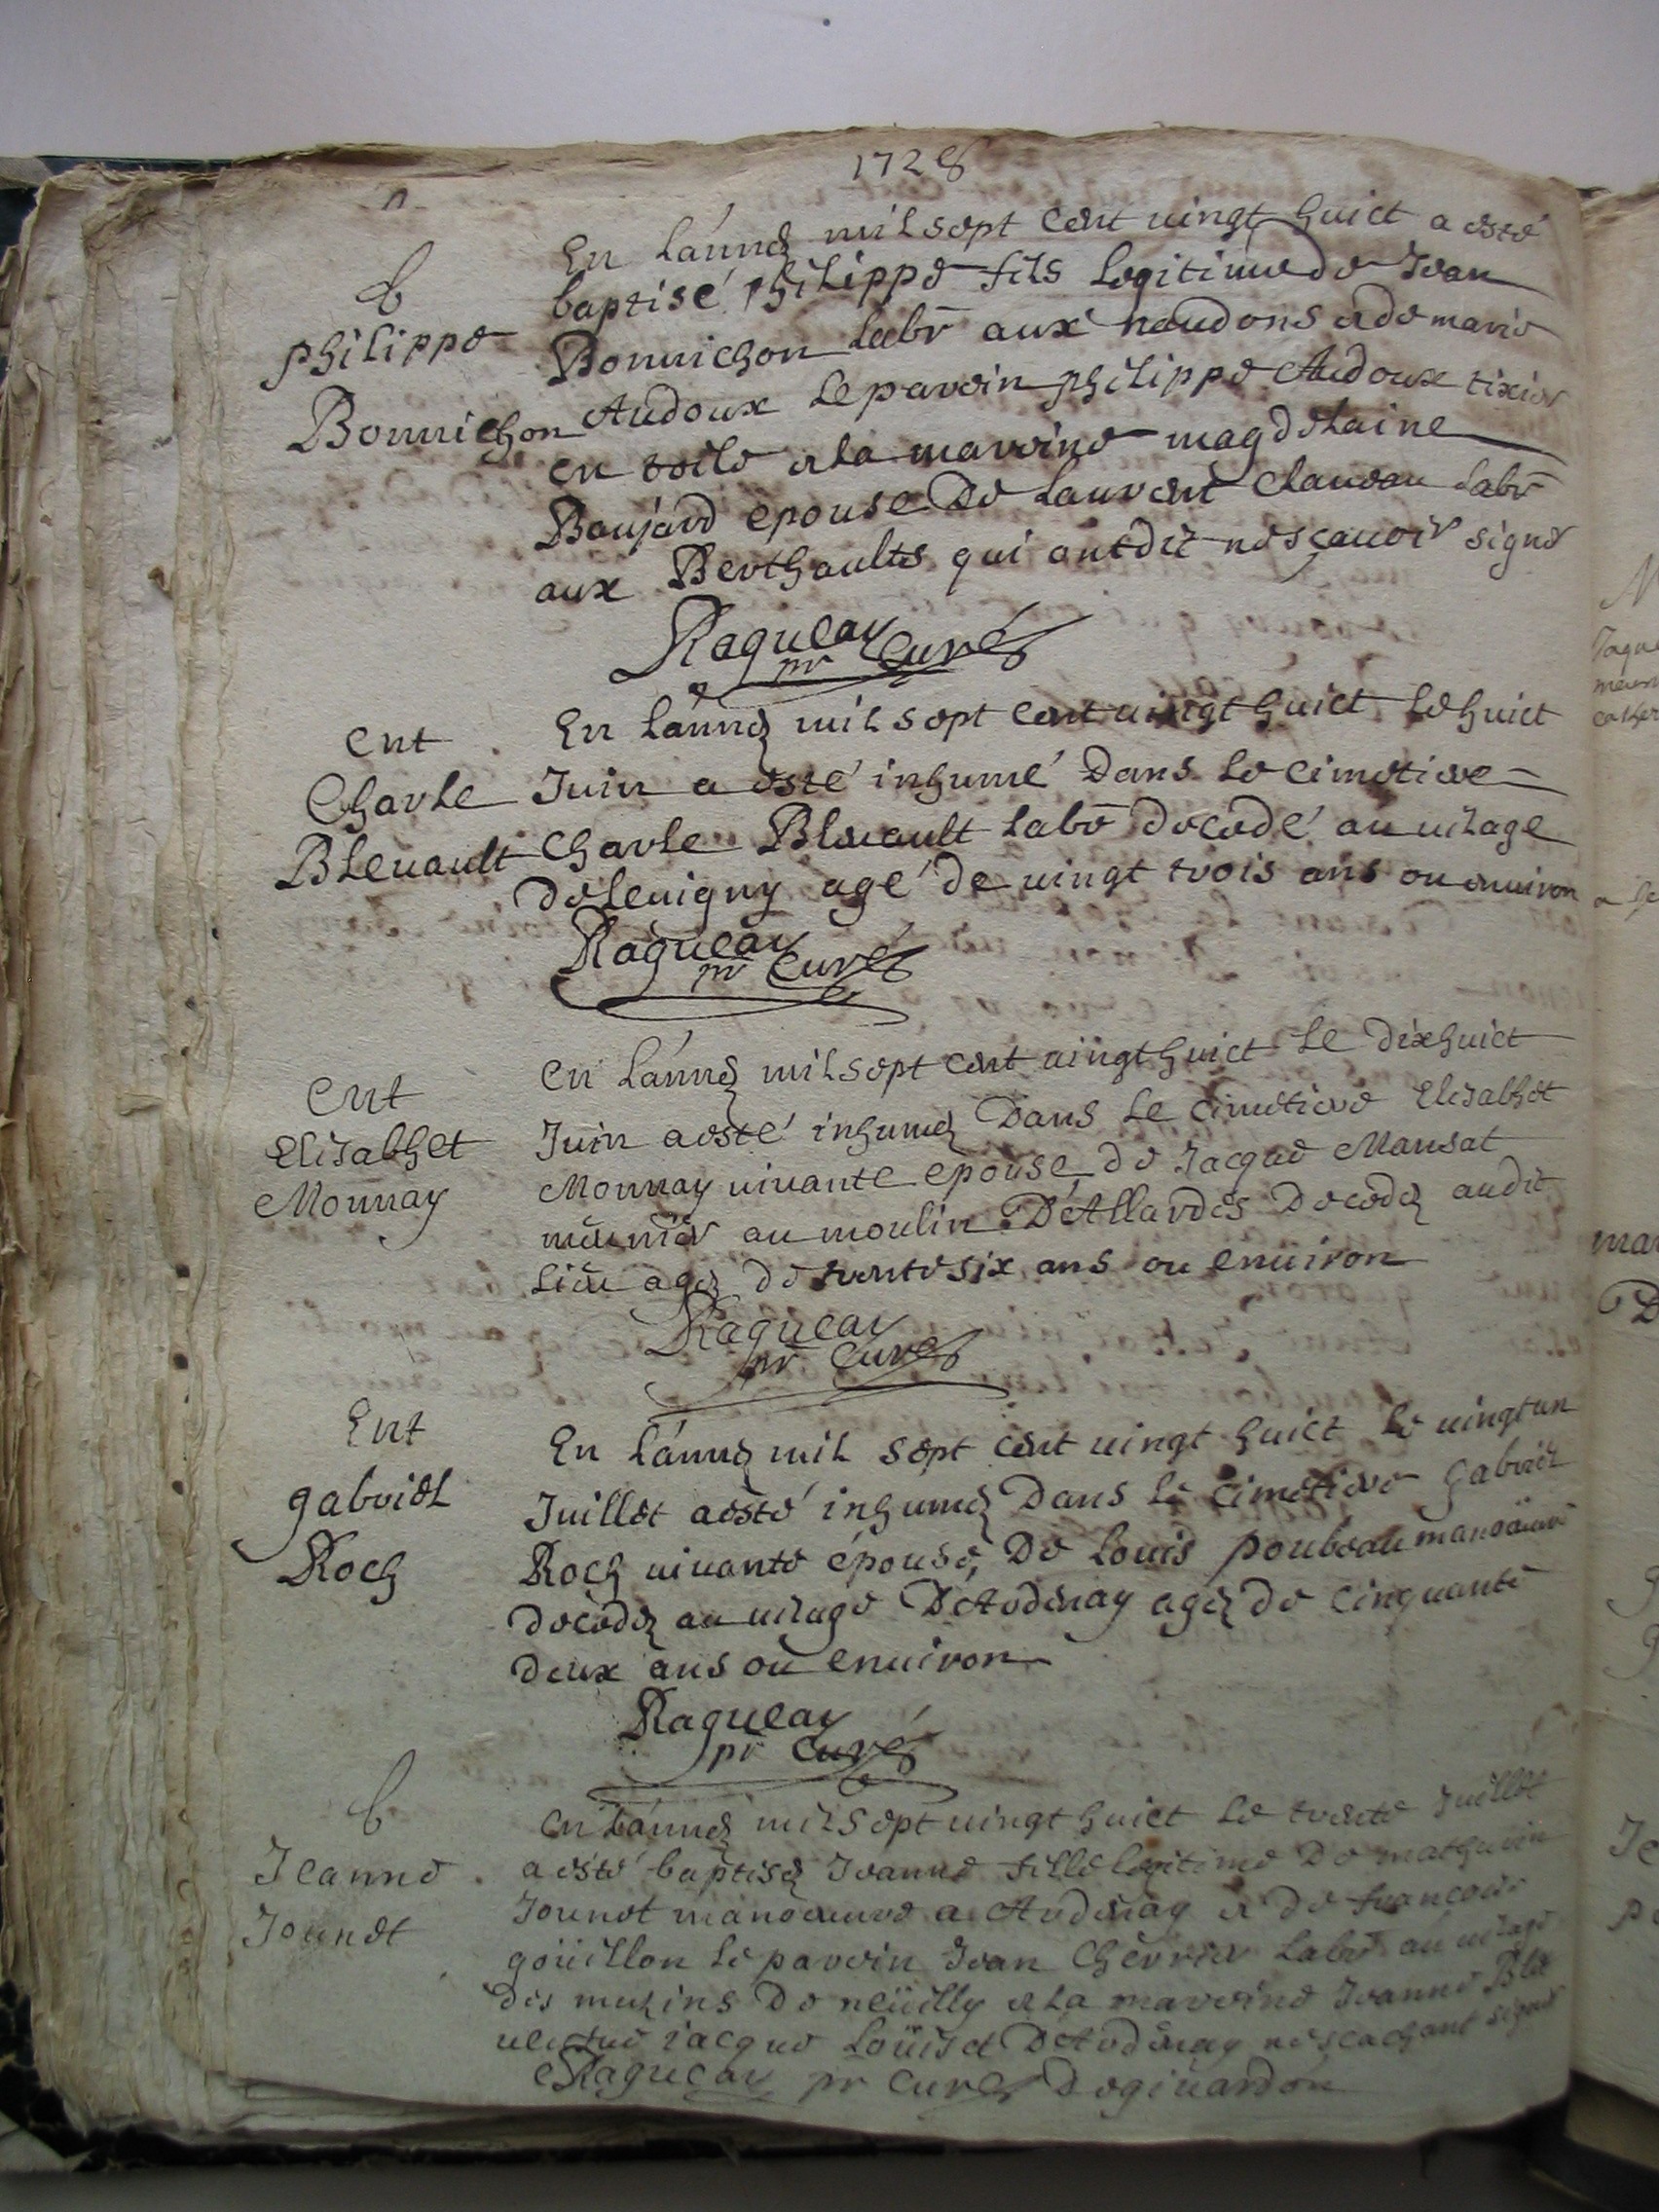 1728
b
philippe
Bonnichon
En Lánneé mil sept cent uingt huict a esté
baptisé philippe fils Legitime de Jean
Bonnichon Labr aux naudons & de marie
Audoux Le parein philippe Audoux tixier
en toile & La mareine magdelaine
Boujard epouse De Laurent Claueau Labr
aux Berthaults qui ont dit ne sçauoir signer
Ragueau
pr Curé
Ent
Charle
Bleuault
En Lánneé mil sept cent uingt huict Le huict
Juin a esté inhumé Dans Le cimetiere
Charle Bleuault Labr decedé au uilage
de Leuigny agé de uingt trois ans ou enuiron
Ragueau
pr Curé
Ent
Elisabhet
Monnay
En Lánneé mil sept cent uingt huict Le dixhuict
Juin a esté inhumeé Dans Le cimetiere Elisabhet
Monnay uiuante epouse de Jacque Mansat
meunier au moulin D'Allardes Decedeé audit
Lieu ageé de trente six ans ou enuiron
Ragueau
pr Curé
Ent
gabriel
Roch
En Lánneé mil sept cent uingt huict Le uingt un
Juillet a esté inhumeé Dans Le cimetiere gabriel
Roch uiuante épouse De Louis poubeau manoeuure
Decedeé au uilage D'Ardenay ageé de cinquante
deux ans ou enuiron
Ragueau
pr Curé
b
Jeanne
Jounet
En Lánneé mil sept uingt huict Le trente Juillet
a esté baptiseé Jeanne fille Legitime De mathurin
Jounet manoeuure a Ardenay & De francoise
goüillon Le parein Jean Cherrier Labr au uilage
des Do neüilly & La mareine Jeanne
jacque Loüis D'Ardenay ne scachant signer
Ragueau pr Curé De giuardon